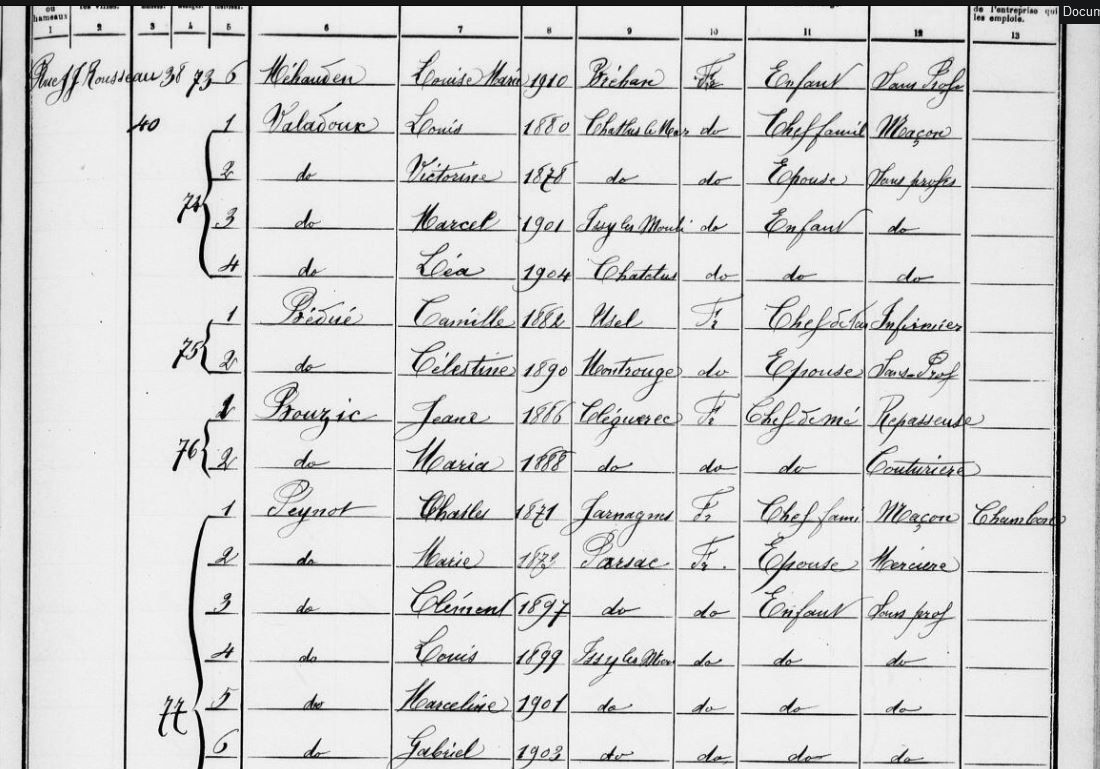 ou hameaux
de l'entreprise qui les emploie.
Docum
1 2 3 4 5 6 7 8 9 10 11 12 13
Rue J J Rousseau 38 73 6 Méhauden Louise Marie 1910 Bréhan Fr Enfant Sans Prof
40 1 Valadoux Louis 1880 Chatlus le Mar do Chef famil Maçon
2 do Victorine 1878 do do Epouse Sans profes
74 3 do Marcel 1901 Issy les Mouli do Enfant do
4 do Léa 1904 Chatelus do do do
1 Camille 1882 Usel Fr Chef de fam Infirmier
75 2 do Célestine 1890 Montrouge do Epouse Sans Prof
1 Bouzic Jeane 1886 Cléguerec Fr Chef de mé Repasseuse
76 2 do Maria 1888 do do do Couturière
1 Peynot Charles 1871 Jarnages Fr Chef fami Maçon
2 do Marie 1873 Parsac Fr. Epouse Mercière
3 do Clément 1897 do do Enfant Sans prof
4 do Louis 1899 Issy les Mou do do do
5 do Marceline 1901 do do do do
77 6 do Gabriel 1903 do do do do